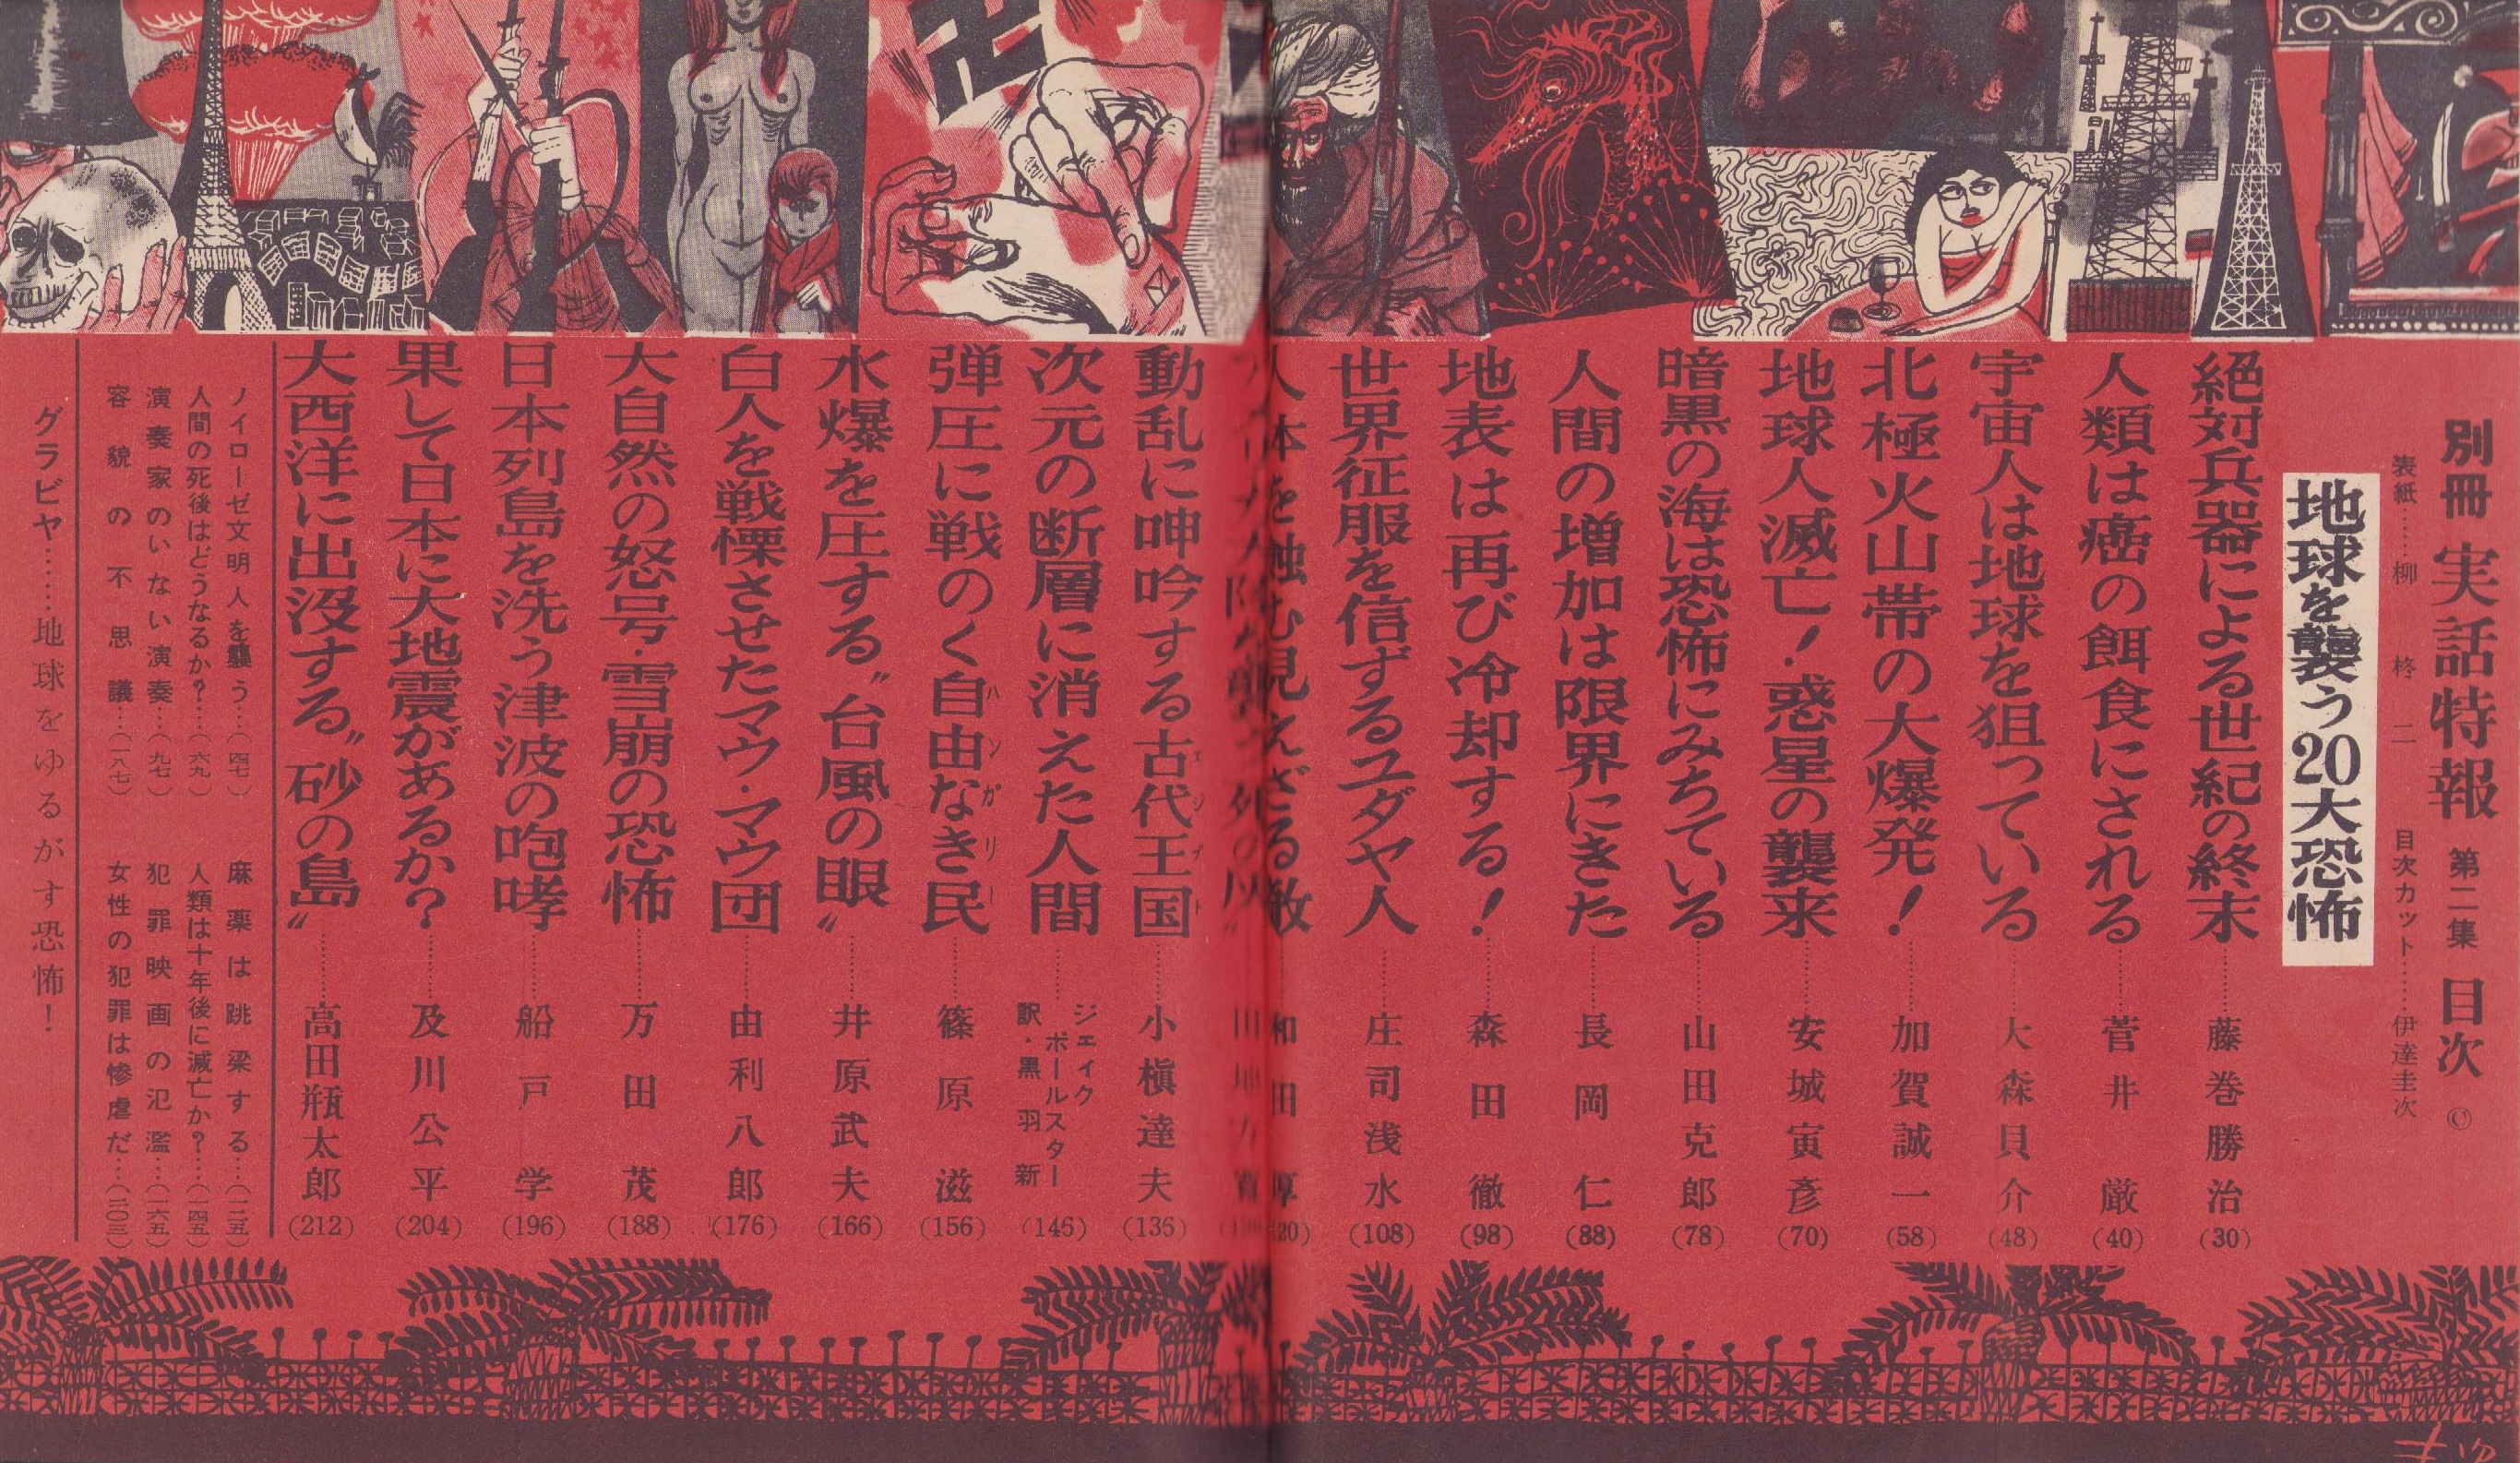 別冊 実話特報 第二集 目次 ©
表紙……柳 柊 二 目次カット……伊達圭次
地球を襲う20大恐怖
絶対兵器による世紀の終末……藤巻勝治(30)
人類は癌の餌食にされる……菅井 厳(40)
宇宙人は地球を狙っている……大森貝介(48)
北極火山帯の大爆発!……加賀誠一(58)
地球人滅亡!惑星の襲来……安城寅彦(70)
暗黒の海は恐怖にみちている……山田克郎(78)
人間の増加は限界にきた……長岡 仁(88)
地表は再び冷却する!……森田 徹(98)
世界征服を信ずるユダヤ人……庄司浅水(108)
人体を蝕む見えざる敵……和田 厚
動乱に呻吟する古代王国……小槇達夫(135)
エジプト
次元の断層に消えた人間……ジェイク ボールスター 訳・黒羽 新(145)
弾圧に戦のく自由なき民……篠原 滋(156)
ハンガリー
水爆を圧する〝台風の眼〟……井原武夫(166)
白人を戦慄させたマウ・マウ団……由利八郎(176)
大自然の怒号・雪崩の恐怖……万田 茂(188)
日本列島を洗う津波の咆哮……船戸 学(196)
果して日本に大地震があるか?……及川公平(204)
大西洋に出没する〝砂の島〟……高田瓶太郎(212)
ノイローゼ文明人を襲う…(四七)
人間の死後はどうなるか?…(六九)
演奏家のいない演奏…(九七)
容貌の不思議…(一八七)
麻薬は跳梁する…(一二五)
人類は十年後に滅亡か?…(一四五)
犯罪映画の氾濫…(一六五)
女性の犯罪は惨虐だ…(二〇三)
グラビヤ……地球をゆるがす恐怖!